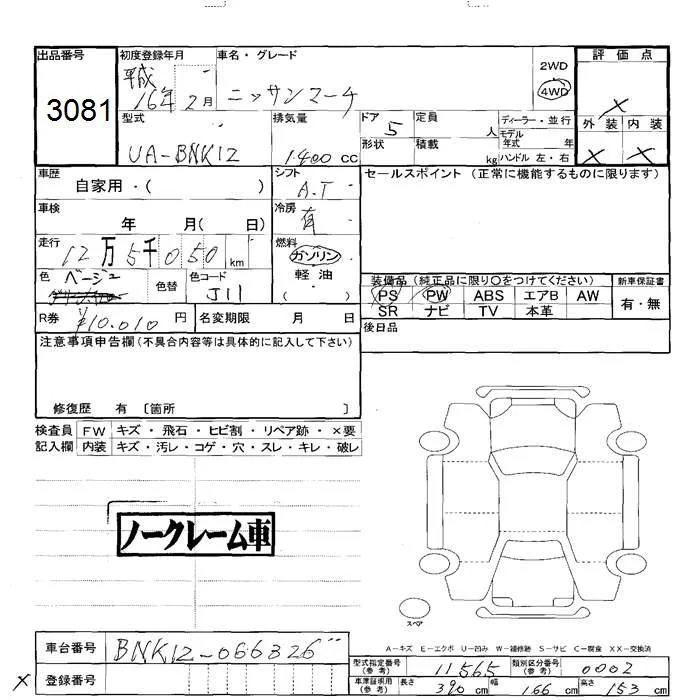 出品番号 初度登録年月 車名・グレード 2WD 評価点
3081 平成16年2月 ニッサンマーチ 4WD ×
型式 排気量 ドア 定員 ディーラー・並行 外装 内装
UA-BNK12 1400cc 5 人 モデル年式 年 × ×
形状 積載 kg ハンドル 左・右
車歴 自家用・( ) シフト A.T セールスポイント(正常に機能するものに限ります)
車検 年 月( 日) 冷房 有
走行 12万5千050km 燃料 ガソリン
軽油
( )
色 ベージュ 色替 色コード J11
装備品(純正品に限り〇をつけてください) 新車保証書
PS PW ABS エアB AW 有・無
SR ナビ TV 本革
R券 ¥10.010円 名変期限 月 日 後日品
注意事項申告欄(不具合内容等は具体的に記入して下さい)
修復歴 有〔箇所 〕
検査員 FW キズ・飛石・ヒビ割・リペア跡・×要
記入欄 内装 キズ・汚レ・コゲ・穴・スレ・キレ・破レ
ノークレーム車
スペア
A-キズ E-エクボ U-凹み W-補修跡 S-サビ C-腐食 XX-交換済
車台番号 BNK12-066326
× 登録番号
型式指定番号(参考) 11565 類別区分番号(参考) 0002
車庫証明用(参考) 長さ 390cm 幅 166cm 高さ 153cm